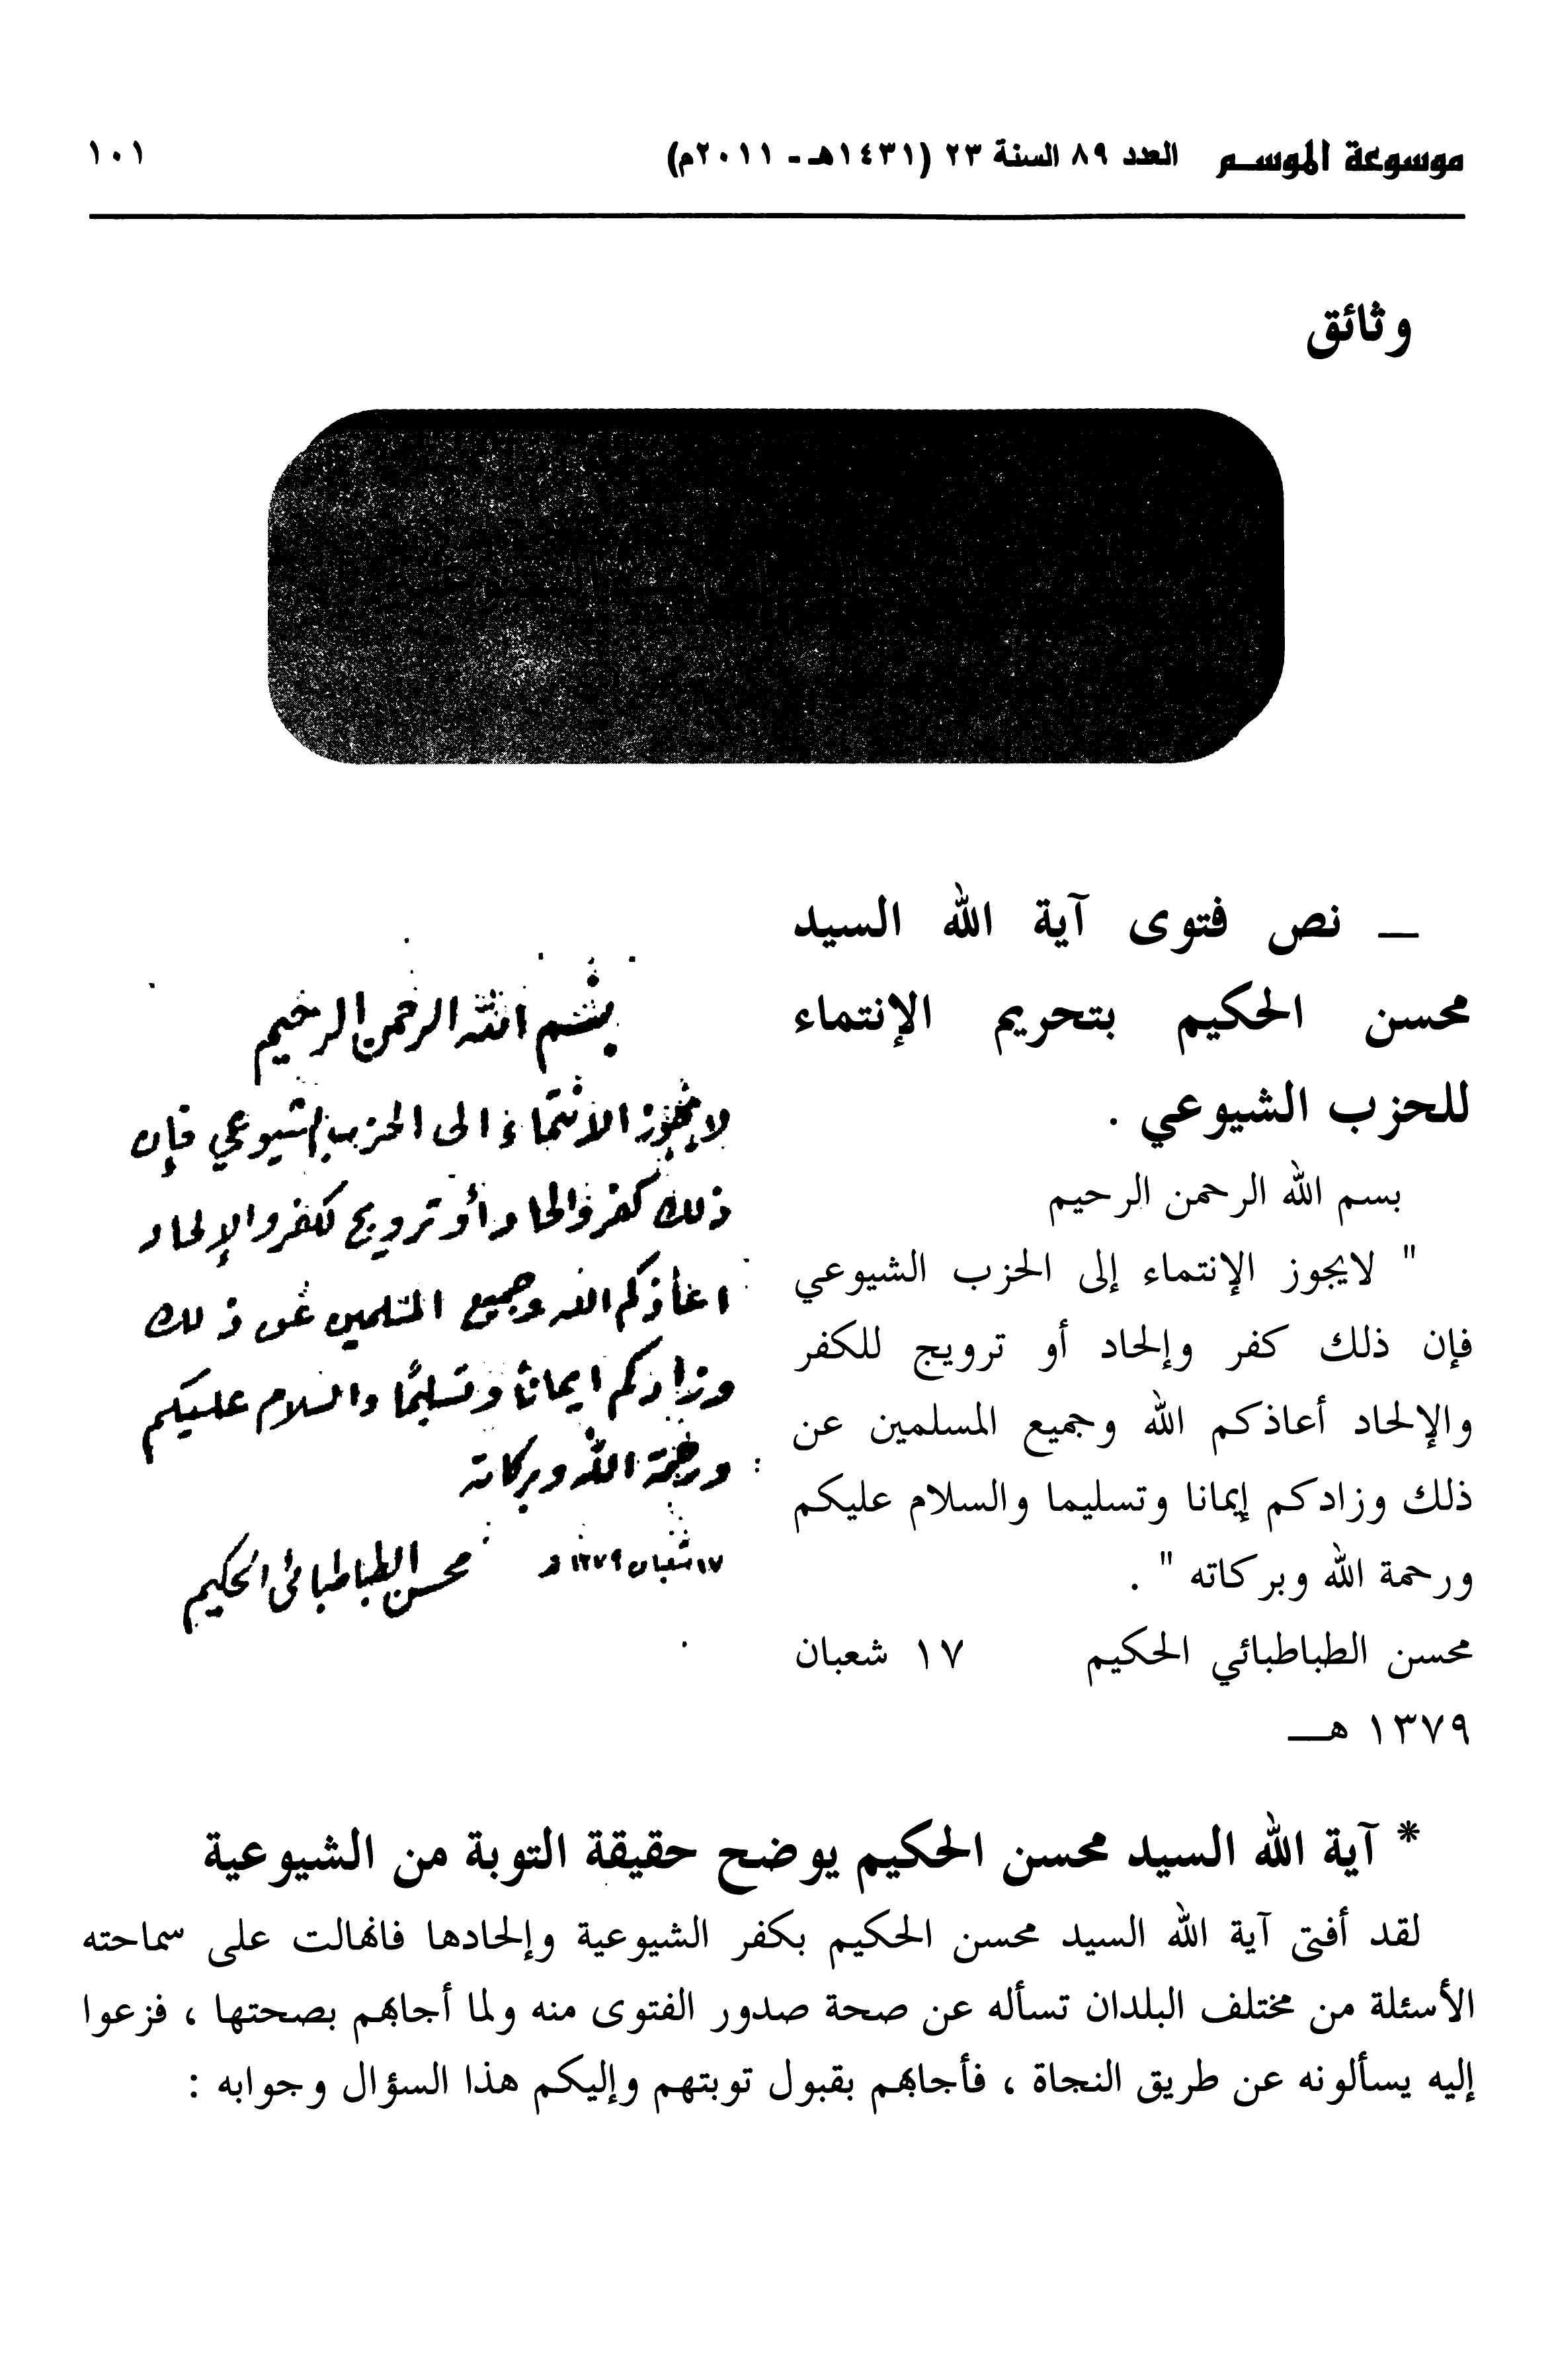 موسوعة الموسم العدد ٨٩ السنة ٢٣ (١٤٣١هـ - ٢٠١١م) ١٠١
وثائق
ــ نص فتوى آية الله السيد
محسن الحكيم بتحريم الإنتماء
للحزب الشيوعي .
بسم الله الرحمن الرحيم
" لايجوز الإنتماء إلى الحزب الشيوعي
فإن ذلك كفر وإلحاد أو ترويج للكفر
والإلحاد أعاذكم الله وجميع المسلمين عن
ذلك وزادكم إيمانا وتسليما والسلام عليكم
ورحمة الله وبركاته " .
محسن الطباطبائي الحكيم ١٧ شعبان
١٣٧٩ هـــ
بسم الله الرحمن الرحيم
لا يجوز الانتماء الى الحزب الشيوعي فإن
ذلك كفر والحاد أو ترويج للكفر والإلحاد
اعاذكم الله وجميع المسلمين عن ذلك
وزادكم ايماناً وتسليماً والسلام عليكم
ورحمة الله وبركاته
١٧ شعبان ١٣٧٩ هـ محسن الطباطبائي الحكيم
* آية الله السيد محسن الحكيم يوضح حقيقة التوبة من الشيوعية
لقد أفتى آية الله السيد محسن الحكيم بكفر الشيوعية وإلحادها فانهالت على سماحته
الأسئلة من مختلف البلدان تسأله عن صحة صدور الفتوى منه ولما أجابهم بصحتها ، فزعوا
إليه يسألونه عن طريق النجاة ، فأجابهم بقبول توبتهم وإليكم هذا السؤال وجوابه :